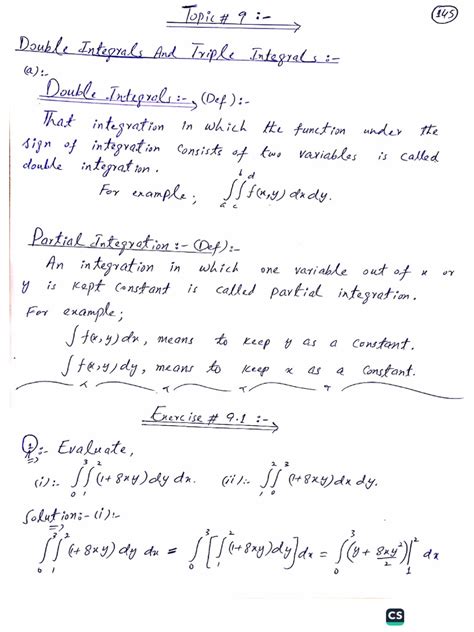 Topic # 9 :-
145
Double Integrals And Triple Integrals :-
(a):-
Double Integrals :- (Def):-
That integration in which the function under the
sign of integration consists of two variables is called
double integration.
For example; ∫_a^b ∫_c^d f(x,y) dx dy.
Partial Integration :- (Def):-
An integration in which one variable out of x or
y is kept constant is called partial integration.
For example;
∫ f(x,y) dx, means to keep y as a constant.
∫ f(x,y) dy, means to keep x as a constant.
Exercise # 9.1 :-
Q:- Evaluate,
(i):- ∫_0^3 ∫_1^2 (1+8xy) dy dx. (ii):- ∫_0^2 ∫_1^2 (1+8xy) dx dy.
Solution:- (i):-
∫_0^3 ∫_1^2 (1+8xy) dy dx = ∫_0^3 [∫_1^2 (1+8xy) dy] dx = ∫_0^3 (y + 8xy²/2)|_1^2 dx
CS